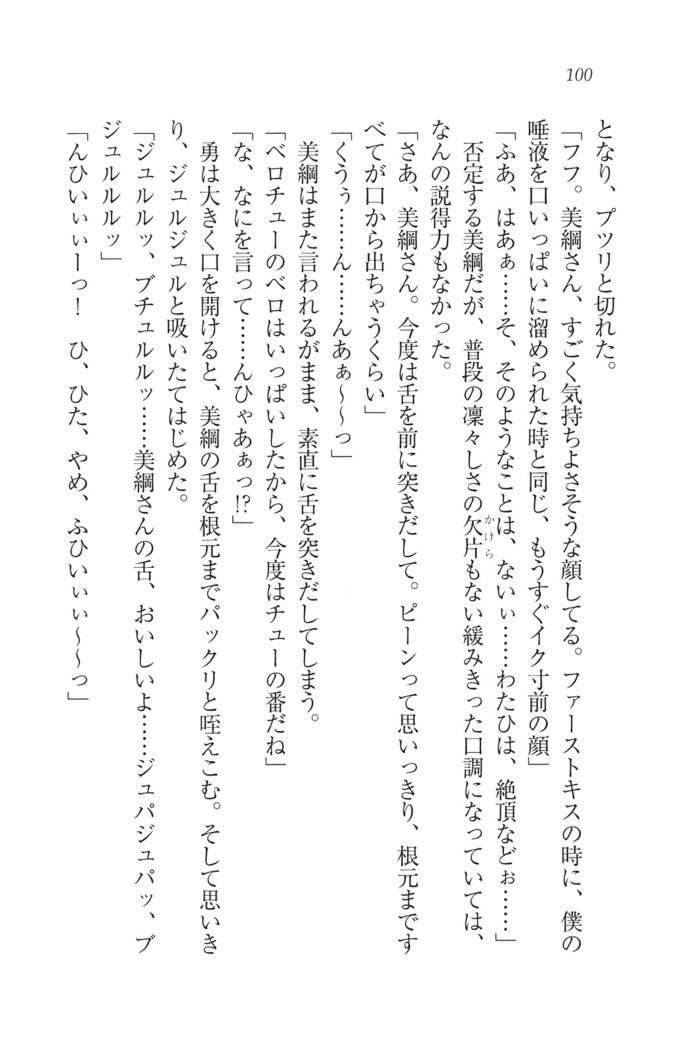 100
となり、プツリと切れた。
「フフ。美綱さん、すごく気持ちよさそうな顔してる。ファーストキスの時に、僕の
唾液を口いっぱいに溜められた時と同じ、もうすぐイク寸前の顔」
「ふあ、はあぁ……そ、そのようなことは、ないぃ……わたひは、絶頂などぉ……」
否定する美綱だが、普段の凜々しさの欠片もない緩みきった口調になっていては、
かけら
なんの説得力もなかった。
「さあ、美綱さん。今度は舌を前に突きだして。ピーンって思いっきり、根元まです
べてが口から出ちゃうくらい」
「くうぅ……ん……んあぁ～～っ」
美綱はまた言われるがまま、素直に舌を突きだしてしまう。
「ベロチューのベロはいっぱいしたから、今度はチューの番だね」
「な、なにを言って……んひゃあぁっ!?」
勇は大きく口を開けると、美綱の舌を根元までパックリと咥えこむ。そして思いき
り、ジュルジュルと吸いたてはじめた。
「ジュルルッ、ブチュルルッ……美綱さんの舌、おいしいよ……ジュパジュパッ、ブ
ジュルルルッ」
「んひいぃぃーっ！　ひ、ひた、やめ、ふひいぃぃ～～っ」